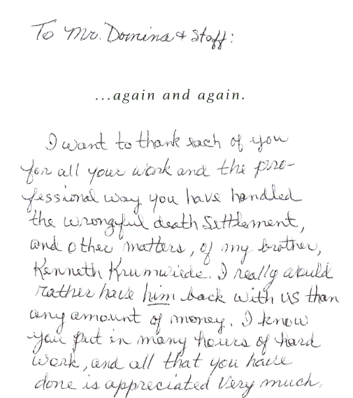 To Mr. Domina & Staff:
...again and again.
I want to thank each of you
for all your work and the pro-
fessional way you have handled
the wrongful death settlement,
and other matters, of my brother,
Kenneth Krumwiede. I really would
rather have him back with us than
any amount of money. I know
you put in many hours of hard
work, and all that you have
done is appreciated very much.